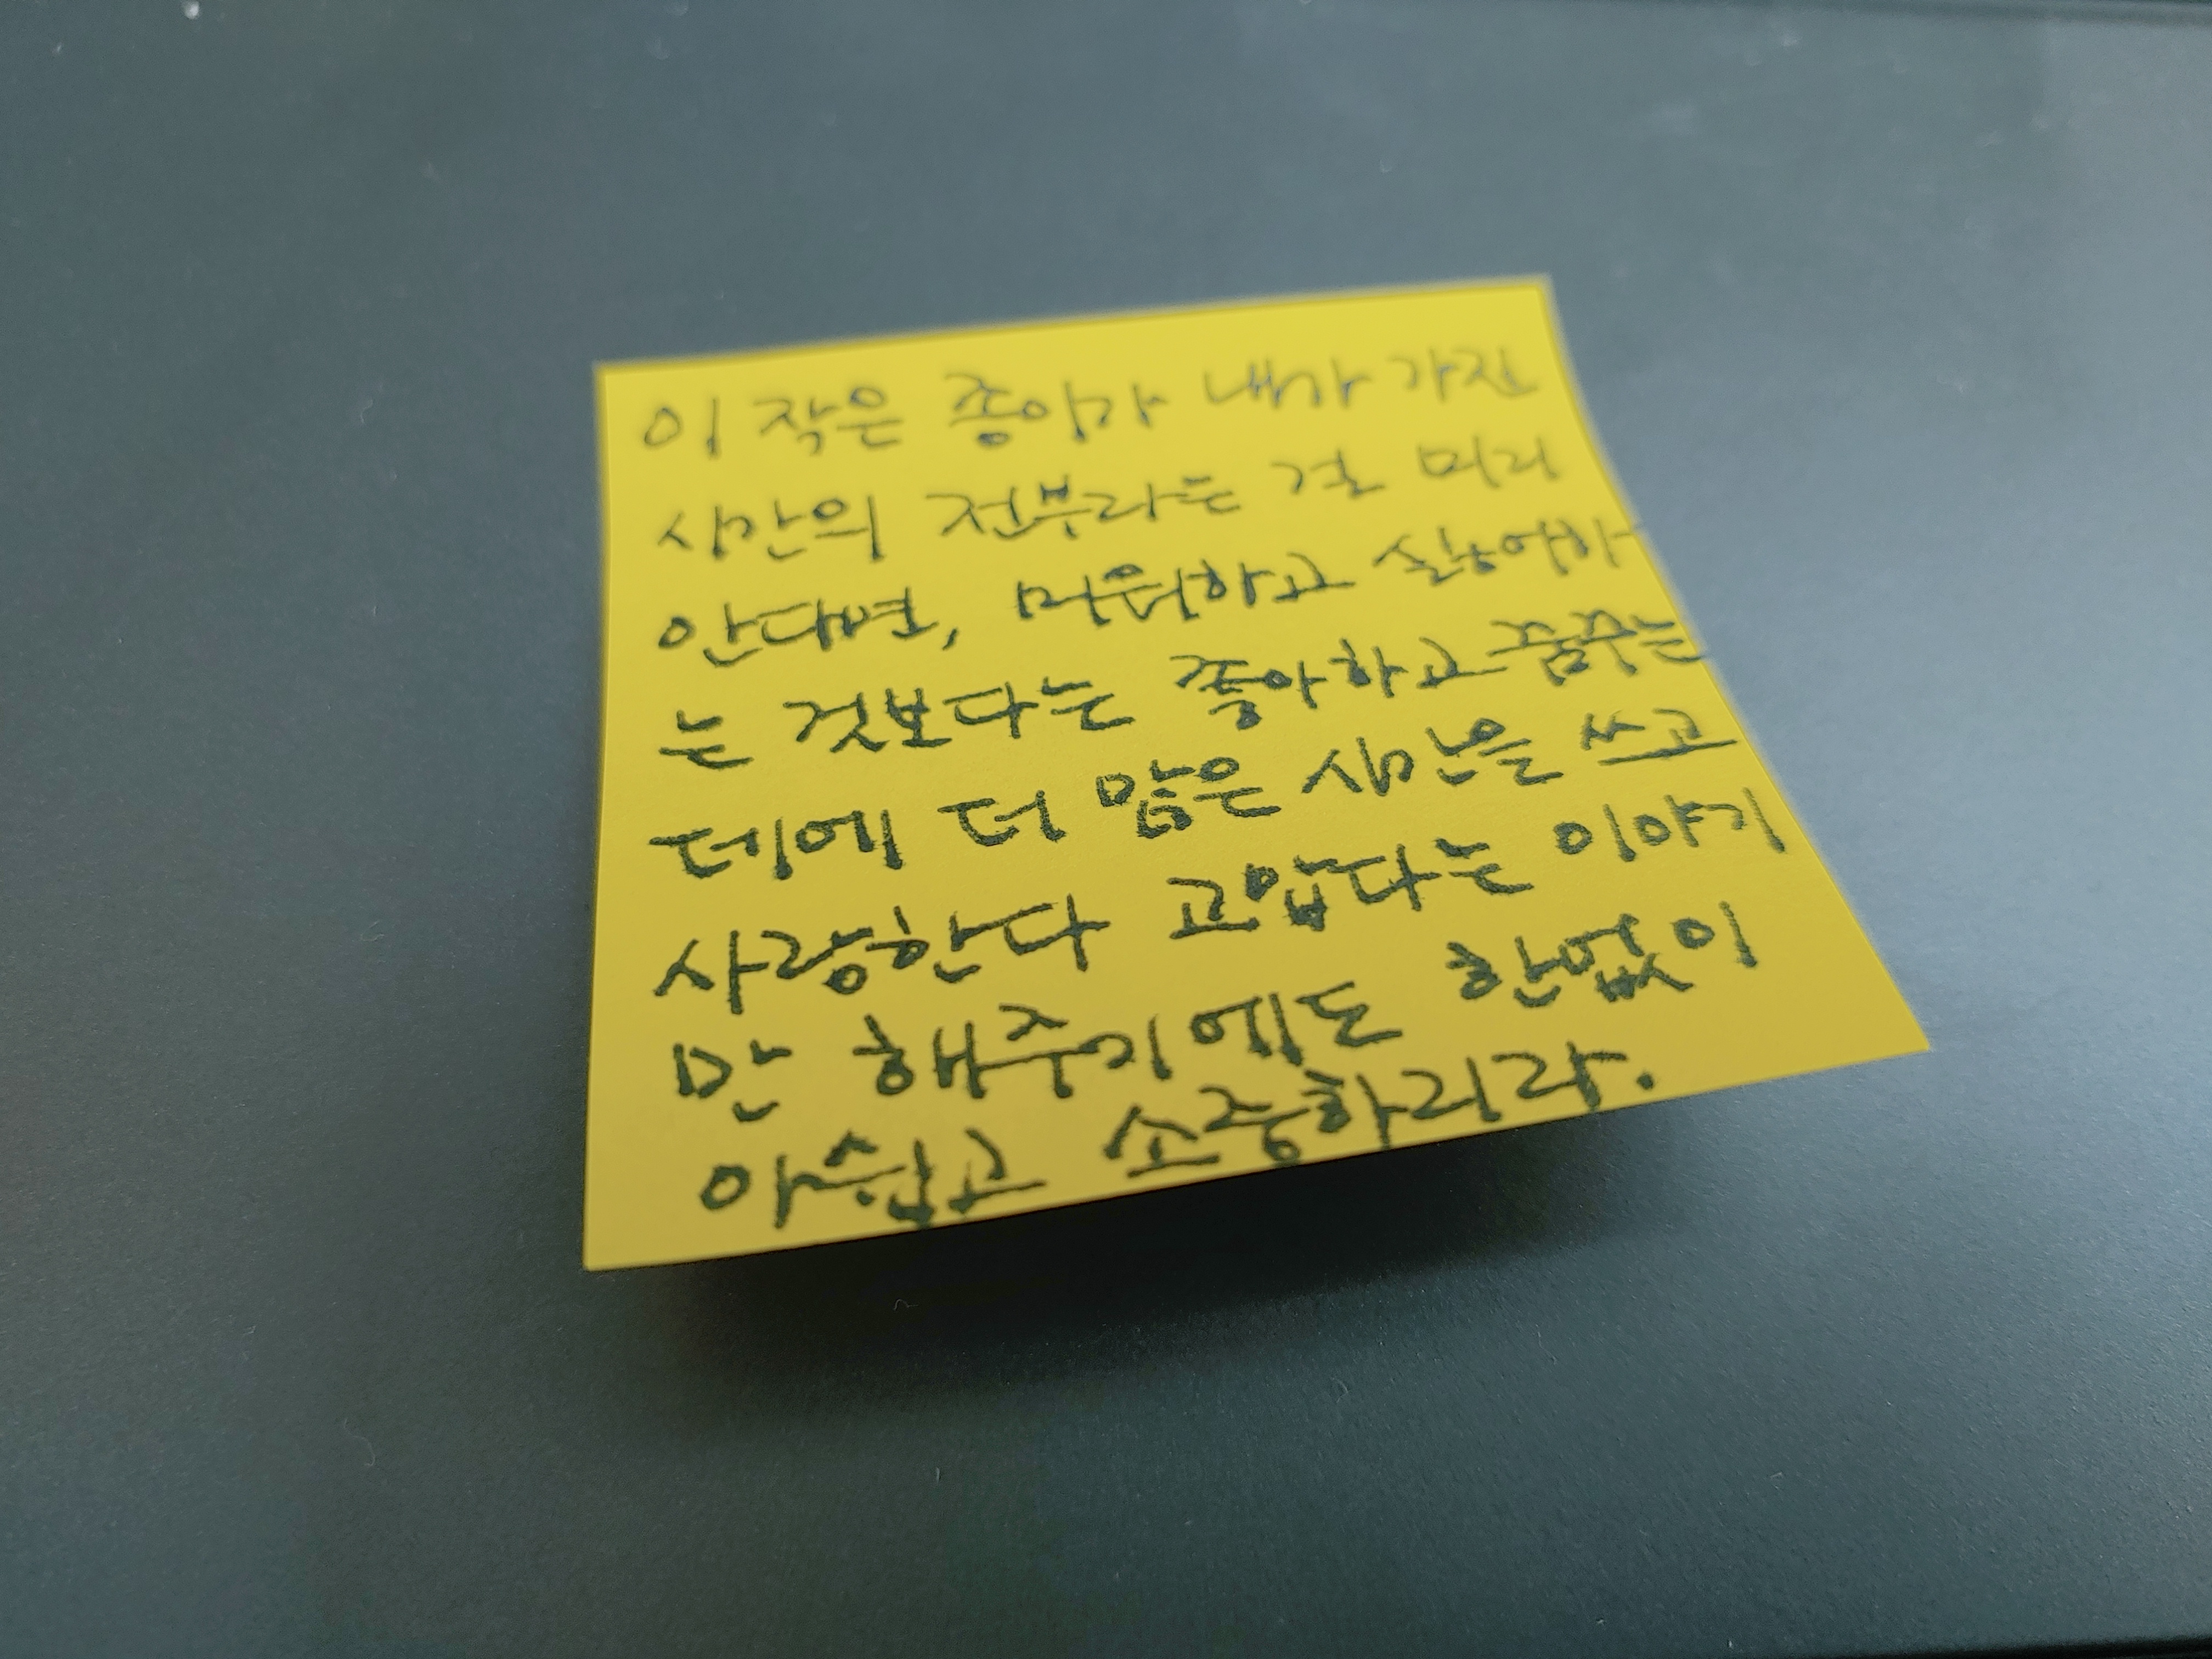 이 작은 종이가 내가 가진
시간의 전부라는 걸 미리
안다면, 미워하고 싫어하
는 것보다는 좋아하고 꿈꾸는
데에 더 많은 시간을 쓰고
사랑한다 고맙다는 이야기
만 해주기에도 한없이
아쉽고 소중하리라.